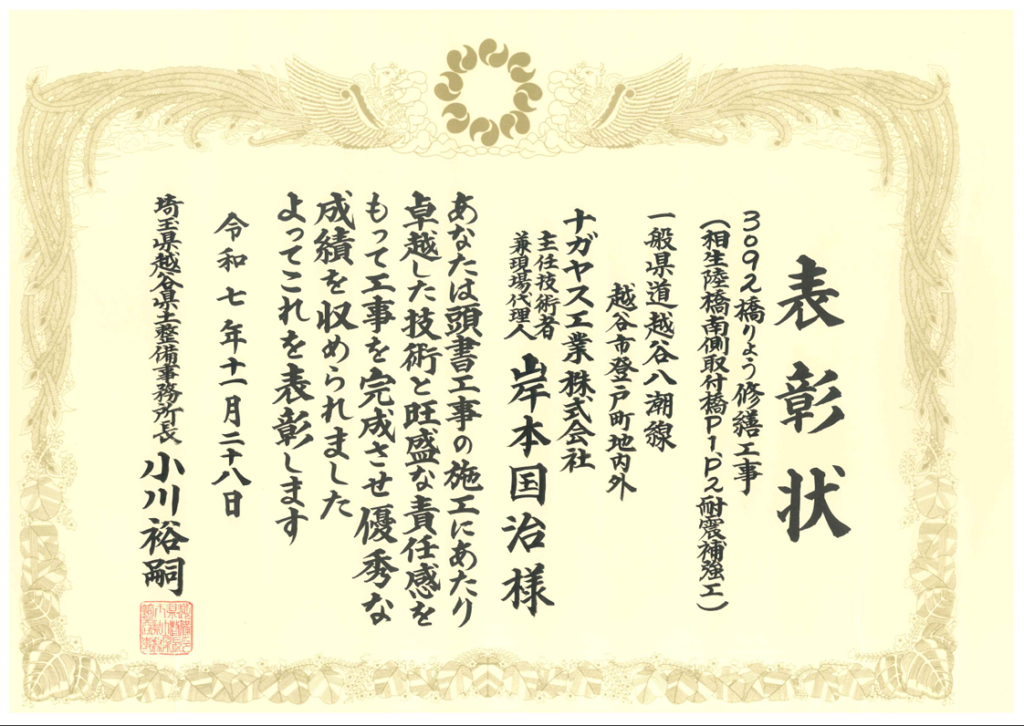 表彰状
3092橋りょう修繕工事
(相生陸橋南側取付橋P1、P2耐震補強工)
一般県道越谷八潮線
越谷市登戸町地内外
ナガヤス工業株式会社
主任技術者
兼現場代理人
岸本国治様
あなたは頭書工事の施工にあたり
卓越した技術と旺盛な責任感を
もって工事を完成させ優秀な
成績を収められました
よってこれを表彰します
令和七年十一月二十八日
埼玉県越谷県土整備事務所長
小川裕嗣